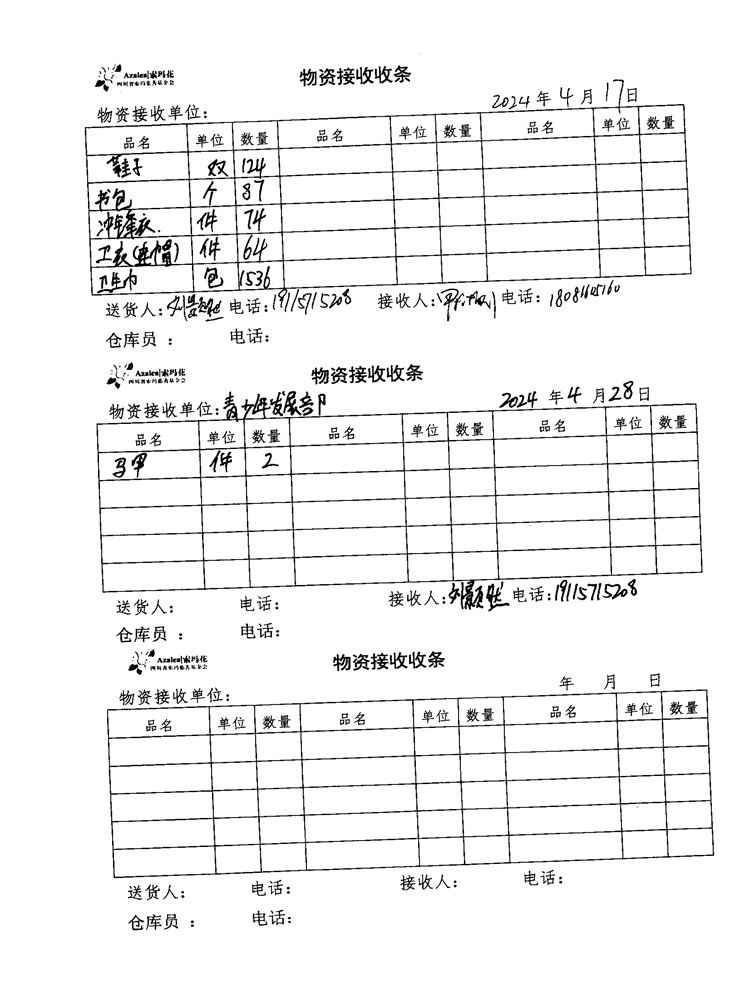 Azalea|索玛花 物资接收收条
四川省索玛慈善基金会
物资接收单位: 2024 年 4 月 17日
品名 单位 数量 品名 单位 数量 品名 单位 数量
鞋子 双 124
书包 个 87
冲锋衣. 件 74
卫衣(连帽) 件 64
卫生巾 包 1536
送货人: 电话:19115715208 接收人: 电话:
仓库员 : 电话:
Azalea|索玛花 物资接收收条
四川省索玛慈善基金会
物资接收单位:青少年发展部 2024 年 4 月28日
品名 单位 数量 品名 单位 数量 品名 单位 数量
马甲 件 2
送货人: 电话: 接收人: 电话:19115715208
仓库员 : 电话:
Azalea|索玛花 物资接收收条
四川省索玛慈善基金会
物资接收单位: 年 月 日
品名 单位 数量 品名 单位 数量 品名 单位 数量
送货人: 电话: 接收人: 电话:
仓库员 : 电话: